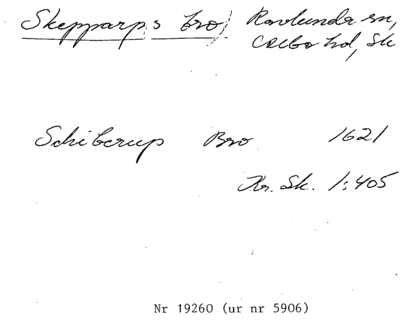 Skepparps bro, Ravlunda sn,
Albo hd, Sk
Schiberup Bro 1621
Kr. Sk. 1:405
Nr 19260 (ur nr 5906)